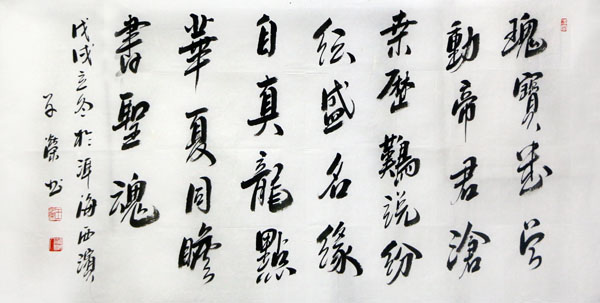 瑰寶
動帝君滄
桒歷難說紛
紜盛名緣
自真龍點
華夏同瞻
書聖魂
戊戌立冬於洱海西濱
榮书